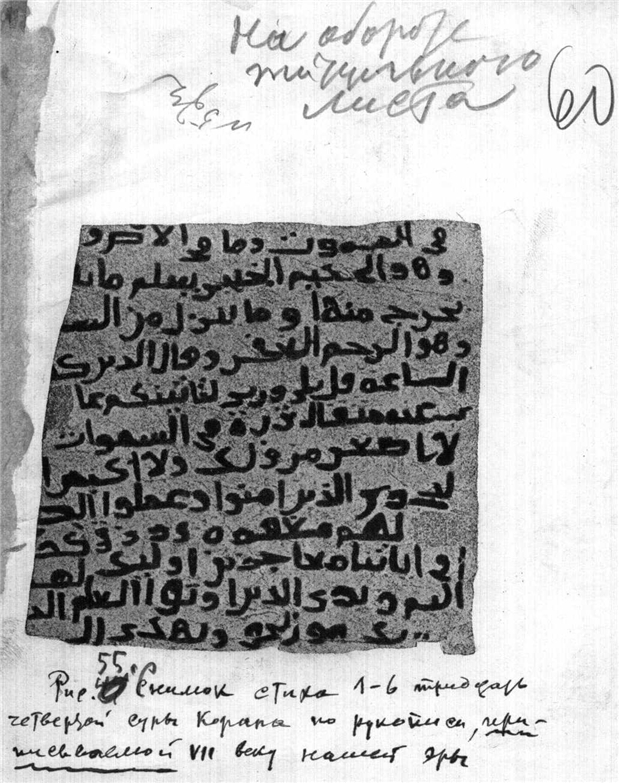 На обороте
титульного
листа
60
في السموت وما في الارض و
وهو الحكيم الخبير يعلم ما
يخرج منها وما ينزل من الس
وهو الرحيم الغفور وقال الذين ك
الساعة قل بلى وربي لتاتينكم عا
عنه مثقال ذرة في السموات
لا اصغر من ذلك ولا اكبر ا
ليجزي الذين امنوا وعملوا الص
لهم مغفرة ورزق كر
في اياتنا معاجزين اولئك له
اليم ويرى الذين اوتوا العلم الذ
ربك هو الحق ويهدي الى
Рис. 55. Снимок стиха 1-6 тридцать
четвертой суры Корана по рукописи, при-
писываемой VII веку нашей эры